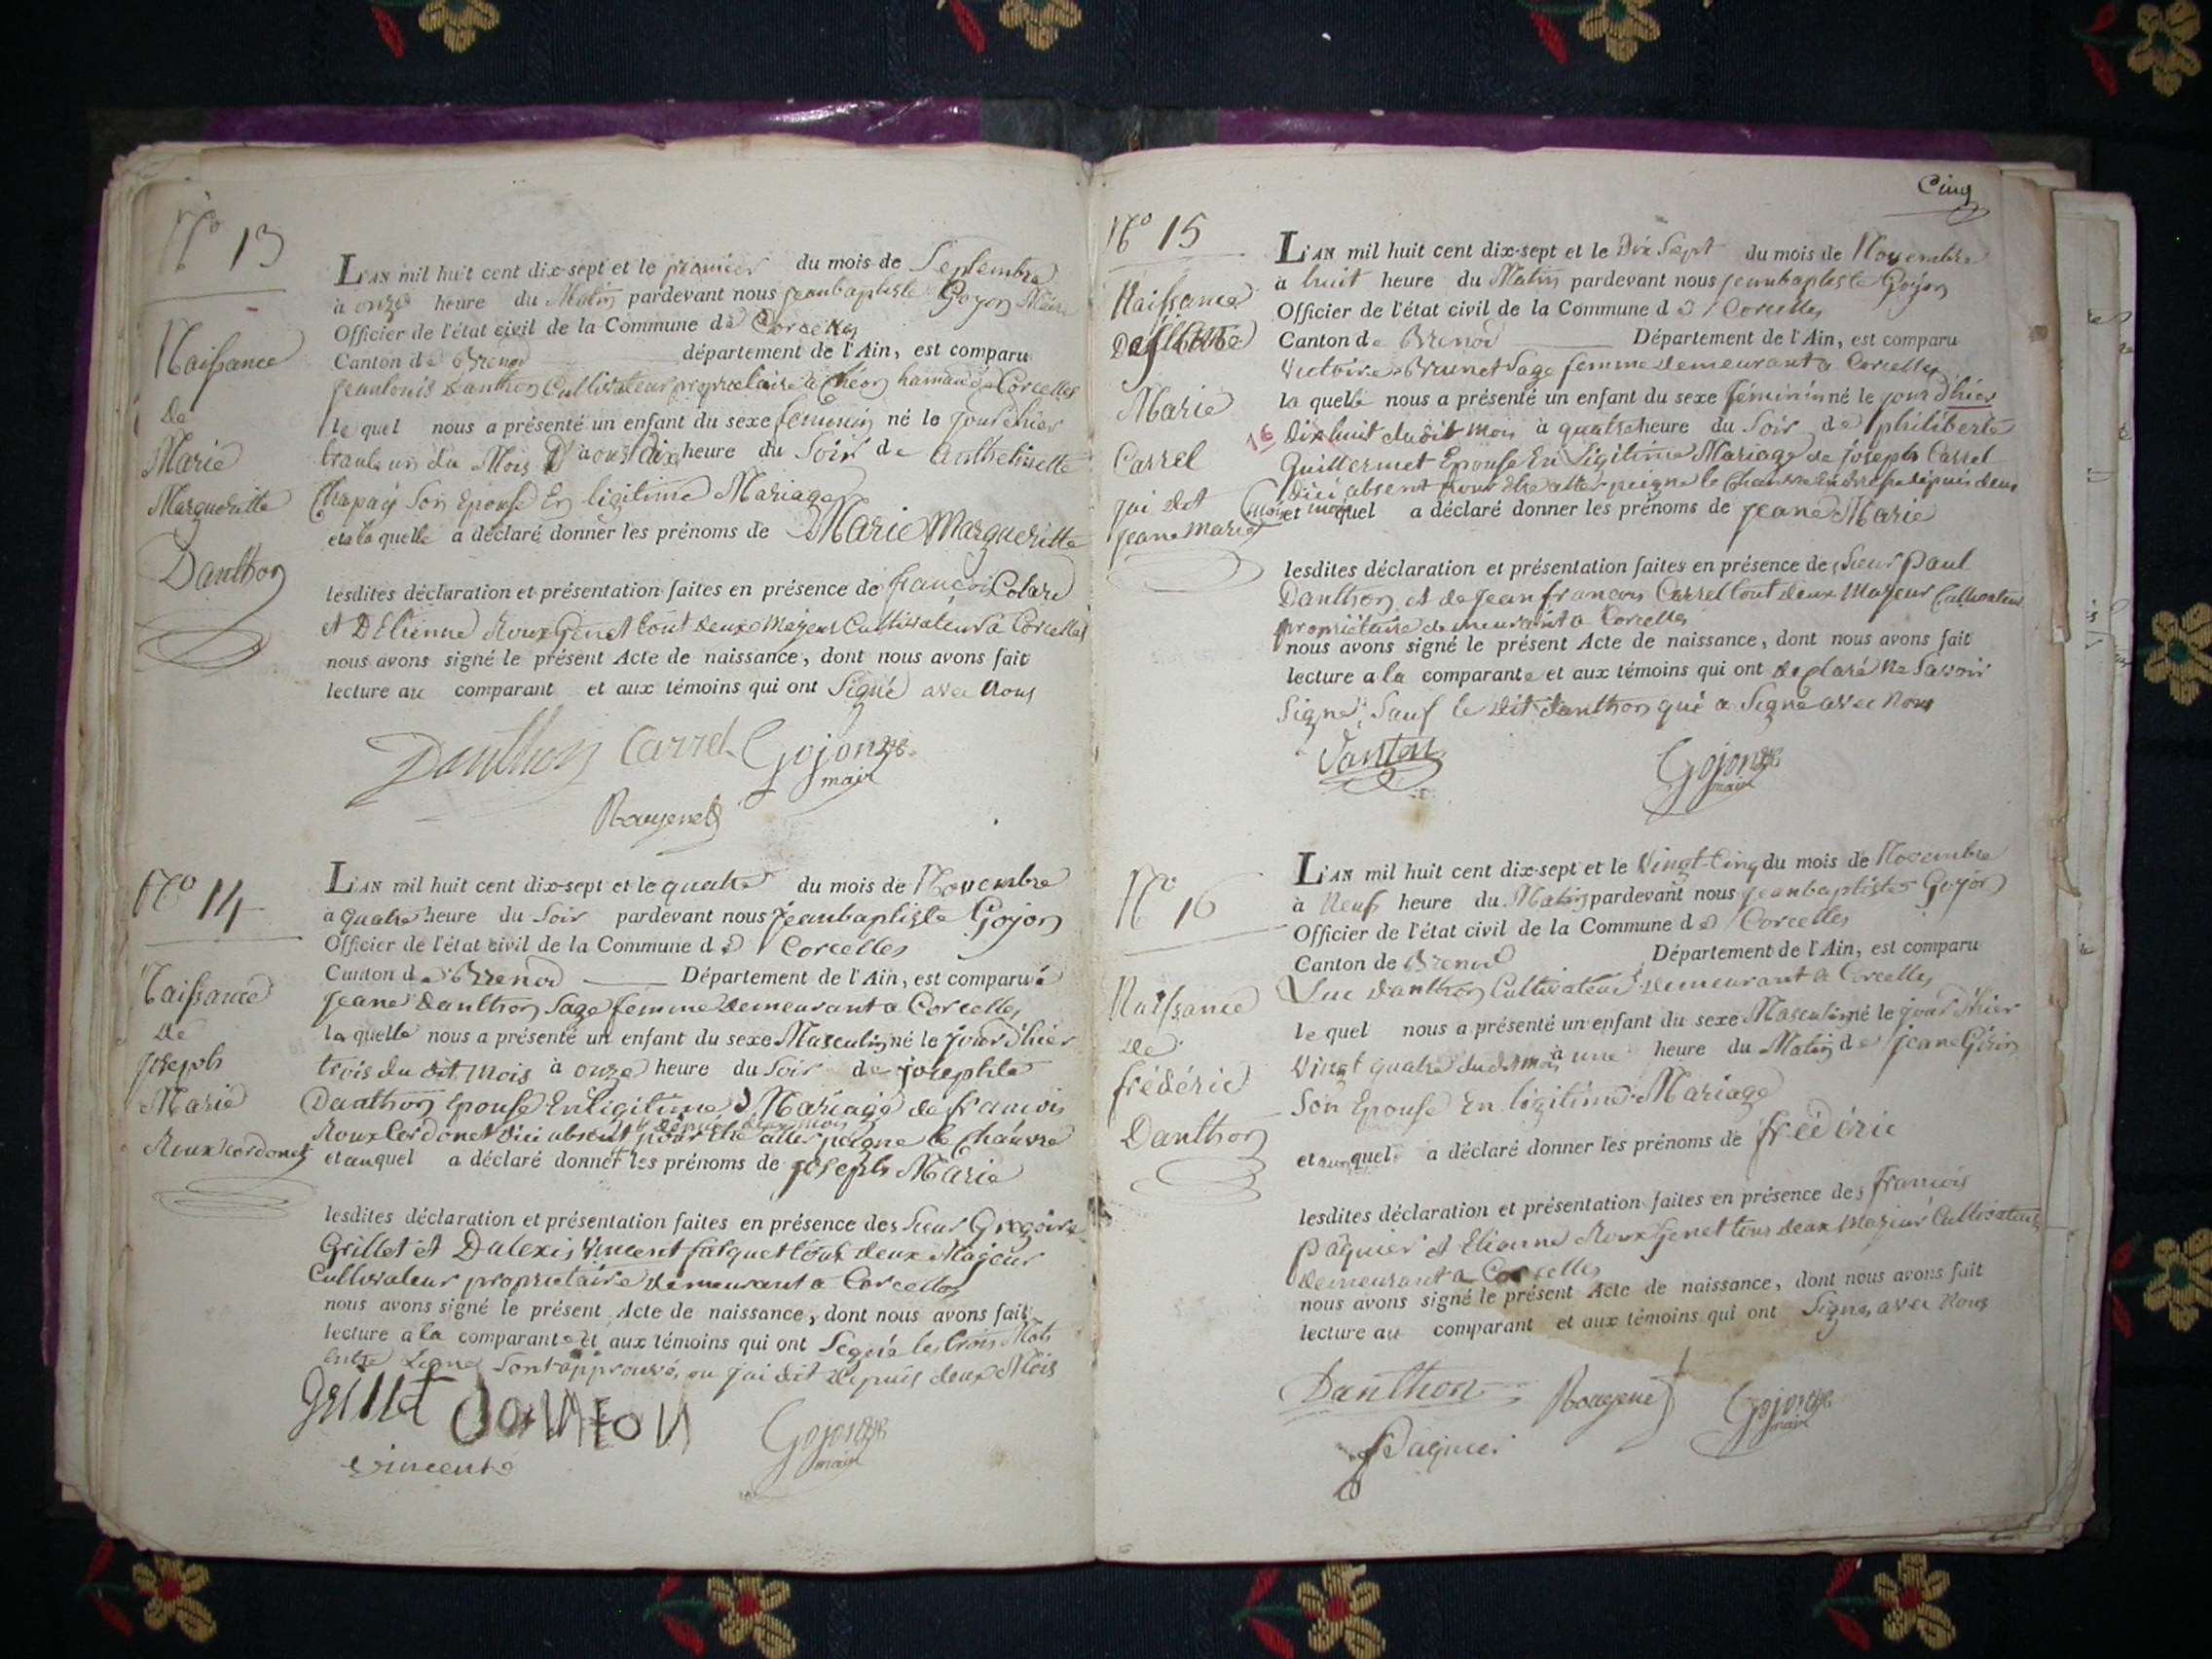 N° 13
Naissance
de
Marie
Margueritte
Danthon
L'AN mil huit cent dix-sept et le premier du mois de Septembre
à onze heure du Matin pardevant nous jeanbaptiste Gojon Maire
Officier de l'état civil de la Commune de Corcelles
Canton de Brenod département de l'Ain, est comparu
jeanlouis Danthon Cultivateur propriétaire a hamaud Corcelles
le quel nous a présenté un enfant du sexe feminin né le jour d'hier
trante un du Mois D'aoust dix heure du Soir de anthelmette
Chapay Son Epouse En légitime Mariage
et a la quelle a déclaré donner les prénoms de Marie Margueritte
lesdites déclaration et présentation faites en présence de françois
et D'Etienne Rouxgenet tout deux Majeur Cultivateur a Corcelles
nous avons signé le présent Acte de naissance, dont nous avons fait
lecture au comparant et aux témoins qui ont Signé avec Nous
Danthon Carrel Gojon
mair
Rougenet
N° 14
Naissance
de
joseph
Marie
Roux cordonet
L'AN mil huit cent dix-sept et le quatre du mois de Novembre
à quatre heure du Soir pardevant nous jeanbaptiste Gojon
Officier de l'état civil de la Commune de Corcelles
Canton de Brenod Département de l'Ain, est comparu
jeane Danthon Sage femme demeurant a Corcelles
la quelle nous a présenté un enfant du sexe Masculin né le jour d'hier
trois du dit Mois à onze heure du Soir de josephte
Danthon Epouse En légitime Mariage de francois
depuis deux mois
Roux Cordonet d'ici absent pour être aller peigne le Chanvre
et auquel a déclaré donner les prénoms de joseph Marie
lesdites déclaration et présentation faites en présence des Sieur Gregoire
Grillet et D'alexis Vincent falquet tout deux Majeur
Cultivateur propriétaire demeurant a Corcelles
nous avons signé le présent Acte de naissance, dont nous avons fait
lecture a la comparante et aux témoins qui ont Signé les trois Mots
entre Ligne Sont approuvé, ou j'ai dit depuis deux Mois
Grillet Danton Gojon
vincent mair
Cinq
N° 15
Naissance
De
Marie
Carrel
jai dit
jeane marie
L'AN mil huit cent dix-sept et le Dix Sept du mois de Novembre
à huit heure du Matin pardevant nous jeanbaptiste Gojon
Officier de l'état civil de la Commune de Corcelles
Canton de Brenod Département de l'Ain, est comparu
Victoire Brunet Sage femme demeurant a Corcelles
la quelle nous a présenté un enfant du sexe féminin né le jour d'hier
16
Dix huit dudit Mois à quatre heure du Soir de philiberte
Guillermet Epouse En légitime Mariage de joseph Carrel
d'ici absent pour être aller peigne le Chanvre depuis deux
mois et quel a déclaré donner les prénoms de jeane Marie
lesdites déclaration et présentation faites en présence de Sieur Paul
Danthon et de jean francois Carrel tout deux Majeur Cultivateur
propriétaire demeurant a Corcelles
nous avons signé le présent Acte de naissance, dont nous avons fait
lecture a la comparante et aux témoins qui ont déclaré ne Savoir
Signé, Sauf le dit Danthon qui a Signé avec Nous
Danton Gojon
mair
N° 16
Naissance
de
frédéric
Danthon
L'AN mil huit cent dix-sept et le Vingt-Cinq du mois de Novembre
à Neuf heure du Matin pardevant nous jeanbaptiste Gojon
Officier de l'état civil de la Commune de Corcelles
Canton de Brenod Département de l'Ain, est comparu
Luc Danthon Cultivateur demeurant a Corcelles
le quel nous a présenté un enfant du sexe Masculin né le jour d'hier
Vingt quatre du dit mois à une heure du Matin de jeane Girin
Son Epouse En légitime Mariage
et auquel a déclaré donner les prénoms de frédéric
lesdites déclaration et présentation faites en présence des francois
paquier et Etienne Rouxgenet tous deux Majeur Cultivateur
demeurant a Corcelles
nous avons signé le présent Acte de naissance, dont nous avons fait
lecture au comparant et aux témoins qui ont Signé avec Nous
Danthon Rougenet Gojon
mair
Paquier